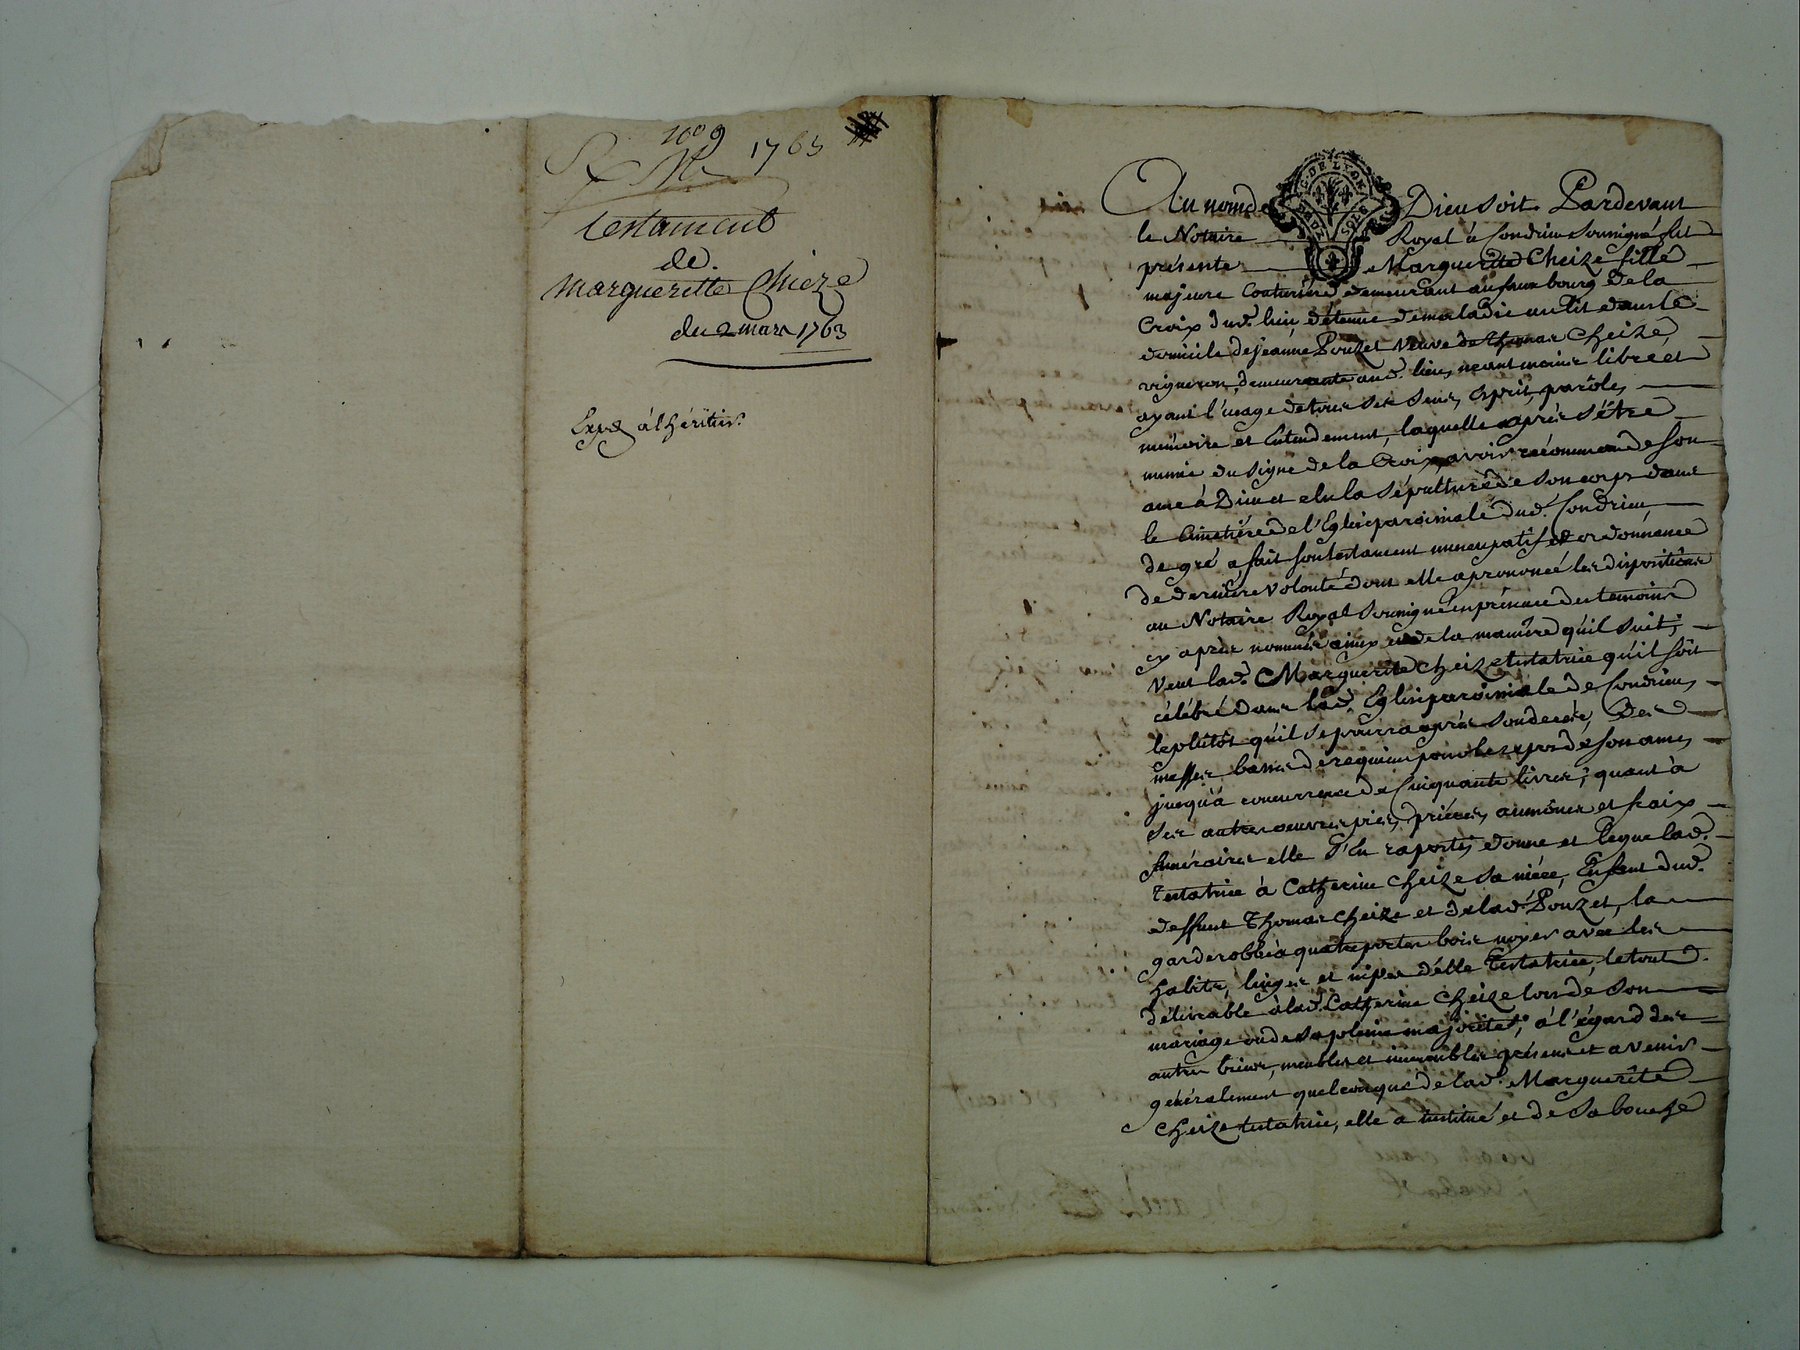 n.º 9
1763
testament
de
Marguerette Chieze
du 2 mars 1763
Exp.é à l'héritier.
G. DE LYON
DEUX SOLS
Au nom de Dieu soit. Pardevant
le Notaire Royal à Condrieu soussigné fut
présente Marguerite Cheize fille
majeure Couturiere demeurant au faux bourg de la
Croix dud. lieu, détenue de maladie au lit dans le
domicile de jeanne Pouzet veuve de Thomas Cheize,
vigneron, demeurante aud. lieu, néantmoins libre et
ayant l'usage de tous ses sens, esprit, parôle,
mémoire et Entendement, laquelle après s'étre
munie du signe de la Croix, avoir recommandé son
ame à Dieu et elu la sépulture de son corps dans
le Cimetiére de l'Eglise paroissiale dud. Condrieu
de gré a fait son testament nuncupatif et ordonnance
de derniere volonté dont elle a prononcé les dispositions
au Notaire Royal soussigné en présence des temoins
cy après nommés ainsy et de la maniére qu'il suit;
veut lad. Marguerite Cheize testatrice qu'il soit
célébré dans lad. Eglise paroissiale de Condrieu,
le plûtôt qu'il se pourra après son decés, Des
messes basses de requiem pour le repos de son ame,
jusqu'à concurrence de Cinquante livres; quant à
ses autres oeuvres pies, priéres, aumônes et fraix
funéraires elle s'en raporte; donne et legue lad.
Testatrice à Catherine Cheize sa niéce, Enfant dud.
deffunt Thomas Cheize et de lad. Pouzet, la
garderobbe à quatre portes bois noyer avec les
habits, linges et nipes d'elle Testatrice, le tout
délivrable à lad. Catherine Cheize lors de son
mariage ou de sa pleine majorité; à l'égard des
autres biens, meubles et immeubles présens et avenir
généralement quelconques de lad. Marguerite
Cheize testatrice, elle a institué et de sa bouche